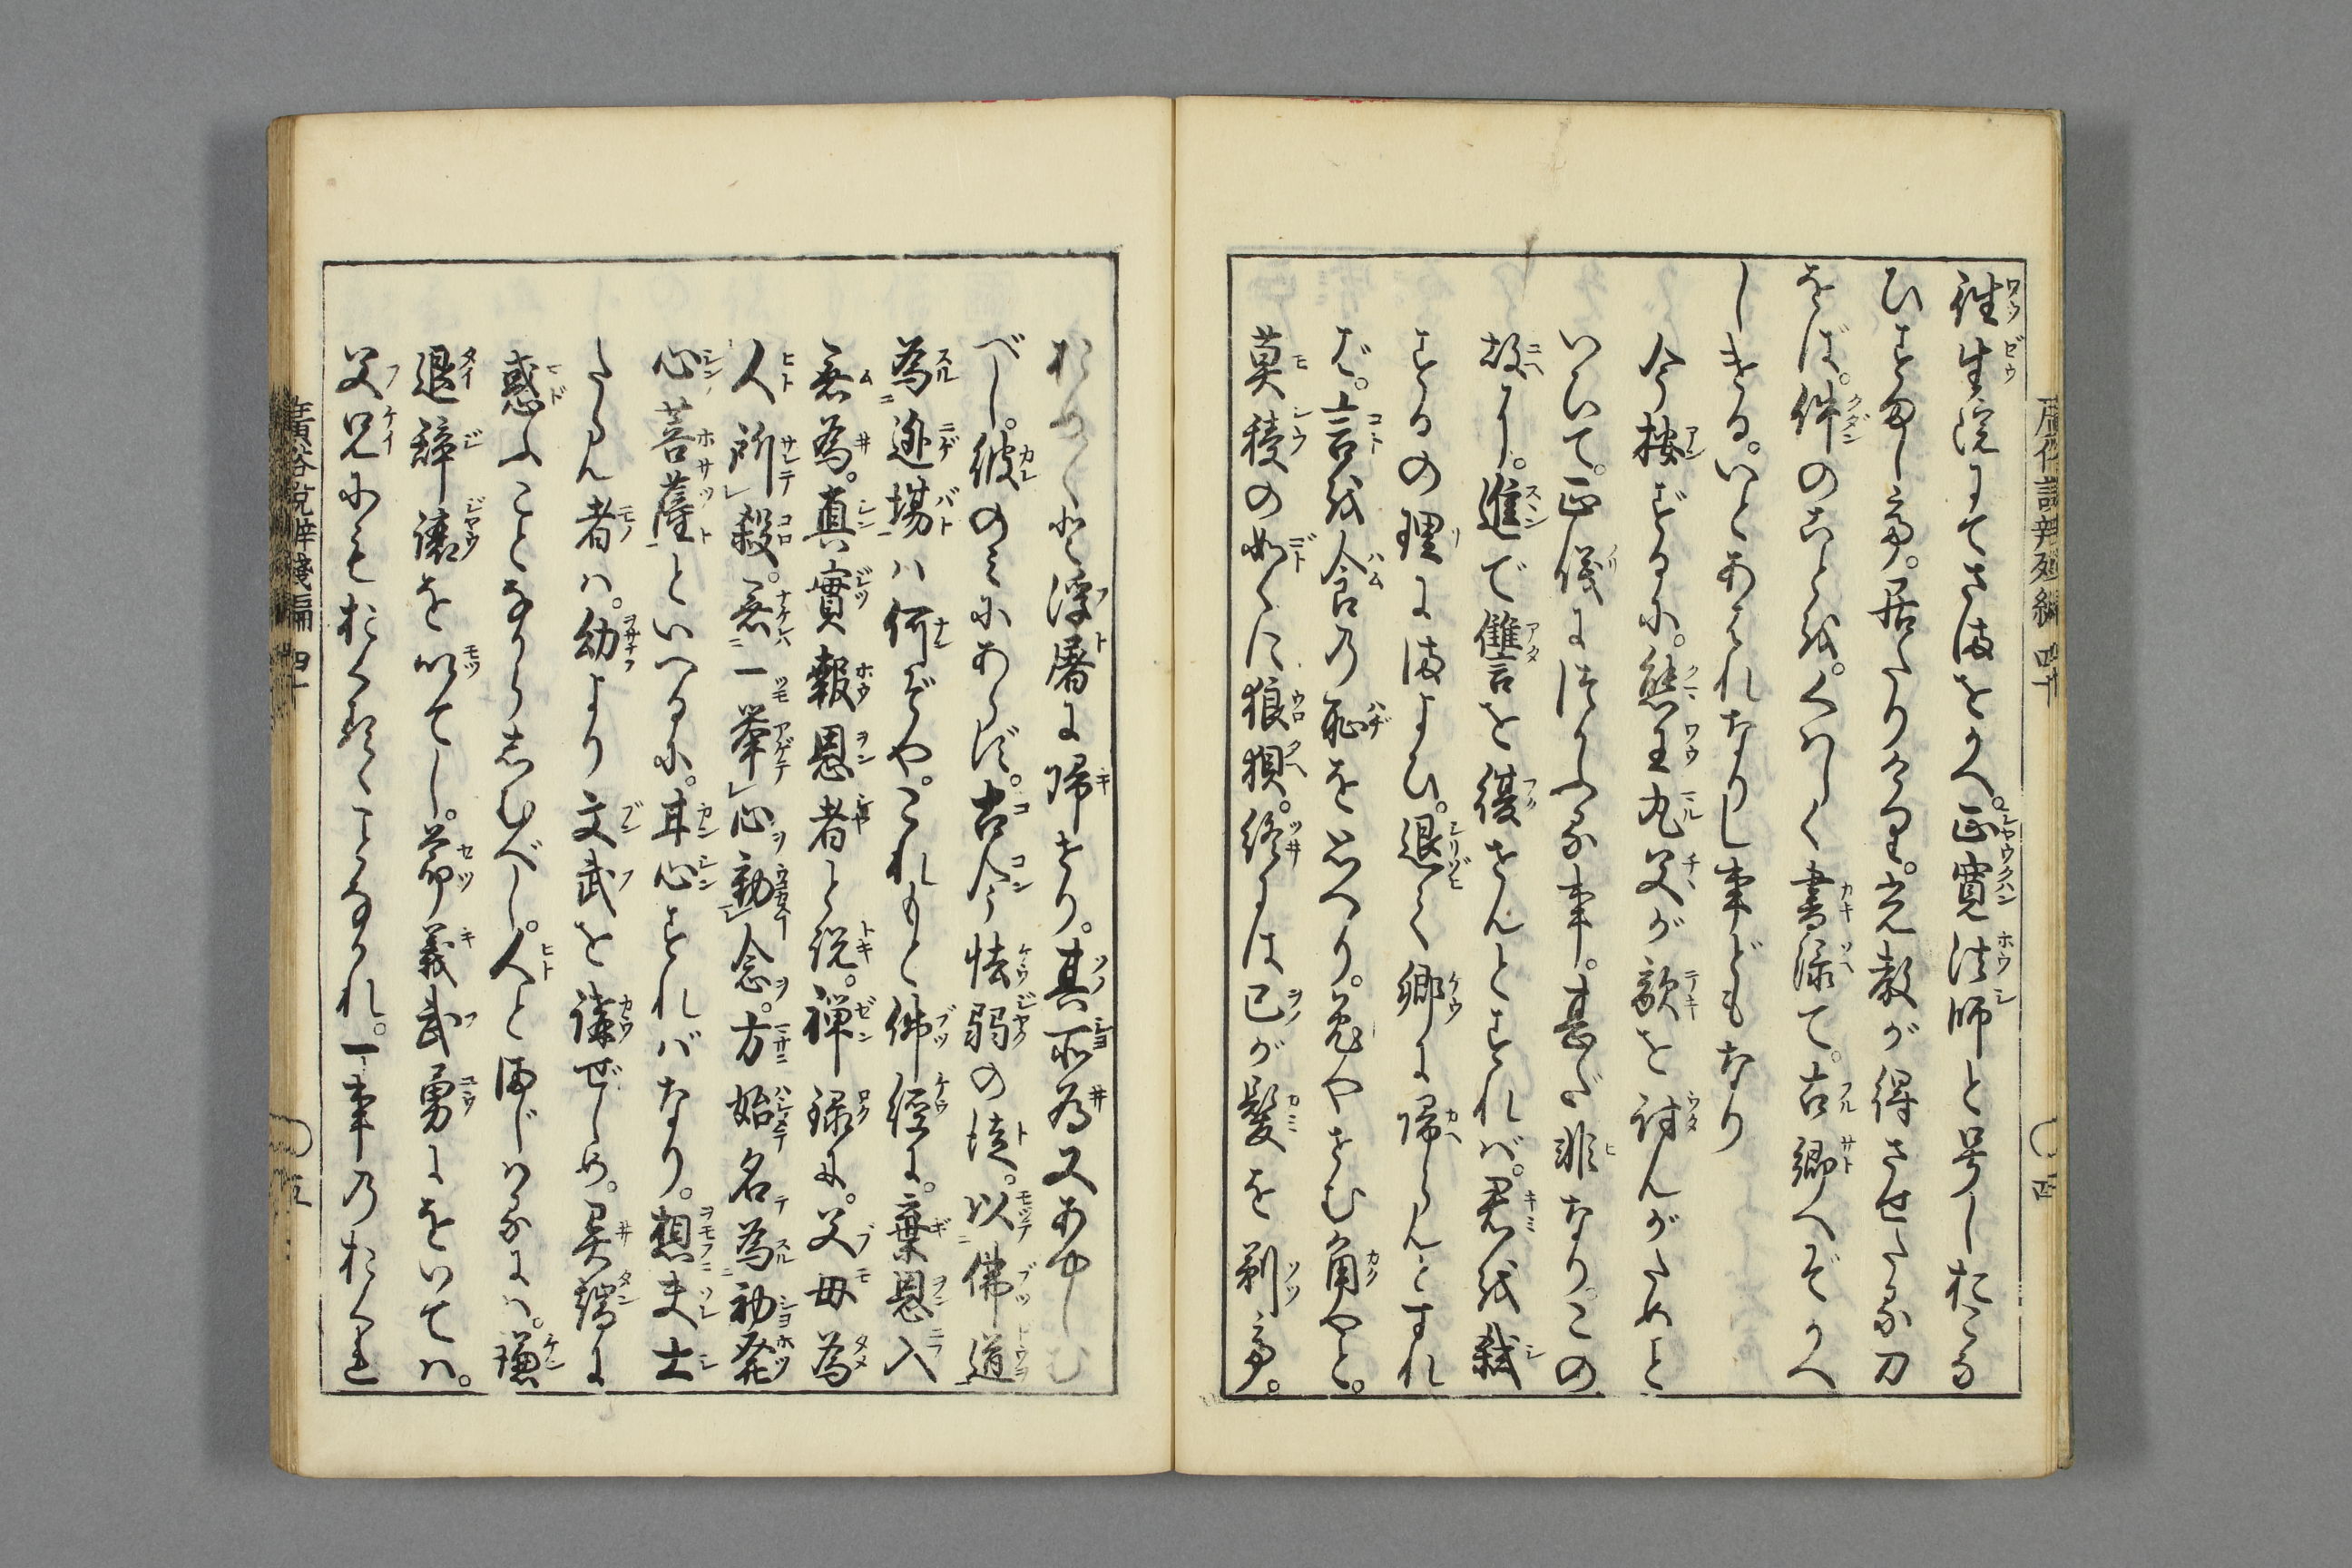 往生院にてさまをかへ。正寛法師と号しおこな
ひすまし給ふ。居たりける。光教が得させたる刀
をば。件のことを。くはしく書添て。古郷へぞかへ
しける。いとあはれなりし事どもなり
今按ずるに。熊王丸父が敵を討んがためと
いひて。正儀につかふる事。甚だ非なり。この
故に。進で讐を復せんとすれば。君を弑
するの理にまよひ。退て郷に帰らんとすれ
ば。言を食の恥を思へり。兎やせむ角やと。
莫稜の如くに狼狽。終には己が髪を剃給ふ。
おめ〳〵と浮屠に帰せり。其所為又あやしむ
べし。彼のみにあらず。古今怯弱の徒。以佛道
為迯場ハ何ぞや。これもと佛経に。棄恩入
無為。真實報恩者と説。禅録に。父母為
人所殺。無一挙心動念。方始名為初発
心菩薩といへるに。甘心すればなり。想夫士
たらん者ハ。幼より文武を講ぜしめ。異端に
惑ふことなからしむべし。人と交じはるにハ。謙
退辞譲を以てし。節義武勇にをいてハ。
父兄にもおくるゝことなかれ。一事のおくれ
廣俗説辨殘編 四十
〇四
廣俗説辨殘編 四十
〇五